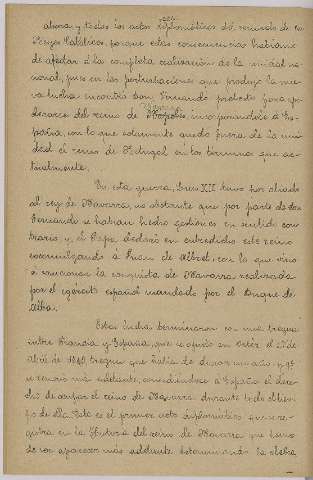 ahora, y todos los actos diplomáticos del reinado de los
Reyes Católicos, porque estas consecuencias habían
de afectar á la completa realización de la unidad na-
cional, pues en las perturbaciones que produjo la nue-
va lucha encontró Don Fernando pretexto para apo-
derarse del reino de Navarra incorporándole á Es-
paña, con lo que solamente quedó fuera de la uni-
dad el reino de Portugal en los términos que ac-
tualmente.
En esta guerra, Luis XII tenía por aliado
al rey de Navarra, no obstante que por parte de Don
Fernando se habían hecho gestiones en sentido con-
trario, y el Papa declaró en entredicho este reino
excomulgando á Juan de Albret, con lo que vino
á sancionar la conquista de Navarra realizada
por el ejército español mandado por el Duque de
Alba.
Estas luchas terminaron con una tregua
entre Francia y España, que se ajustó en Ortéz el 1º de
Abril de tregua que había de durar un año y qe
se renovó más adelante, concediéndose á España el dere-
cho de ocupar el reino de Navarra durante todo el tiem-
po de ella. Este es el primer acto diplomático que se re-
gistra en la Historia del reino de Navarra, que hemos
de ver aparecer más adelante determinando la